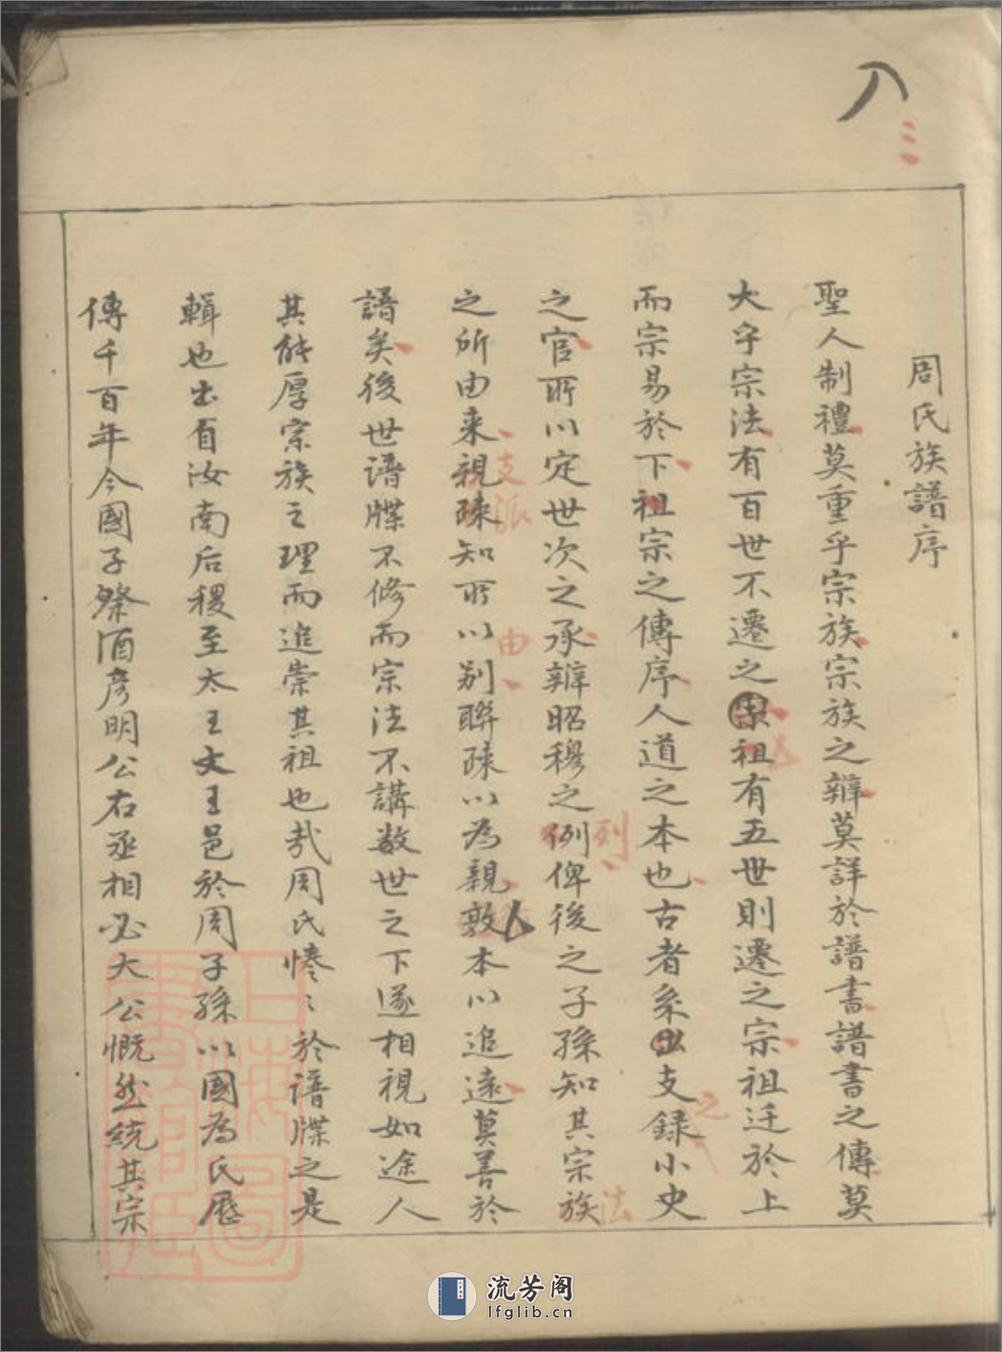 周氏族譜序
聖人制禮莫重乎宗族宗族之辨莫詳於譜書譜書之傳莫
大乎宗法有百世不遷之祖有五世則遷之宗祖迁於上
而宗易於下祖宗之傳序人道之本也古者系出支録小史
之官所以定世次之承辨昭穆之例俾後之子孫知其宗族
之所由来親疎知所以别聯疎以為親敦本以追遠莫善於
譜矣後世譜牒不修而宗法不講数世之下遂相視如途人
其能厚宗族之理而追崇其祖也哉周氏惓〻於譜牒之是
輯也出自汝南后稷至太王文王邑於周子孫以國為氏歷
傳千百年今國子祭酒彦明公右丞相必大公慨然統其宗
八
三
支派
由
列
之
法
上海圖書館藏
流芳阁
lfglib.cn